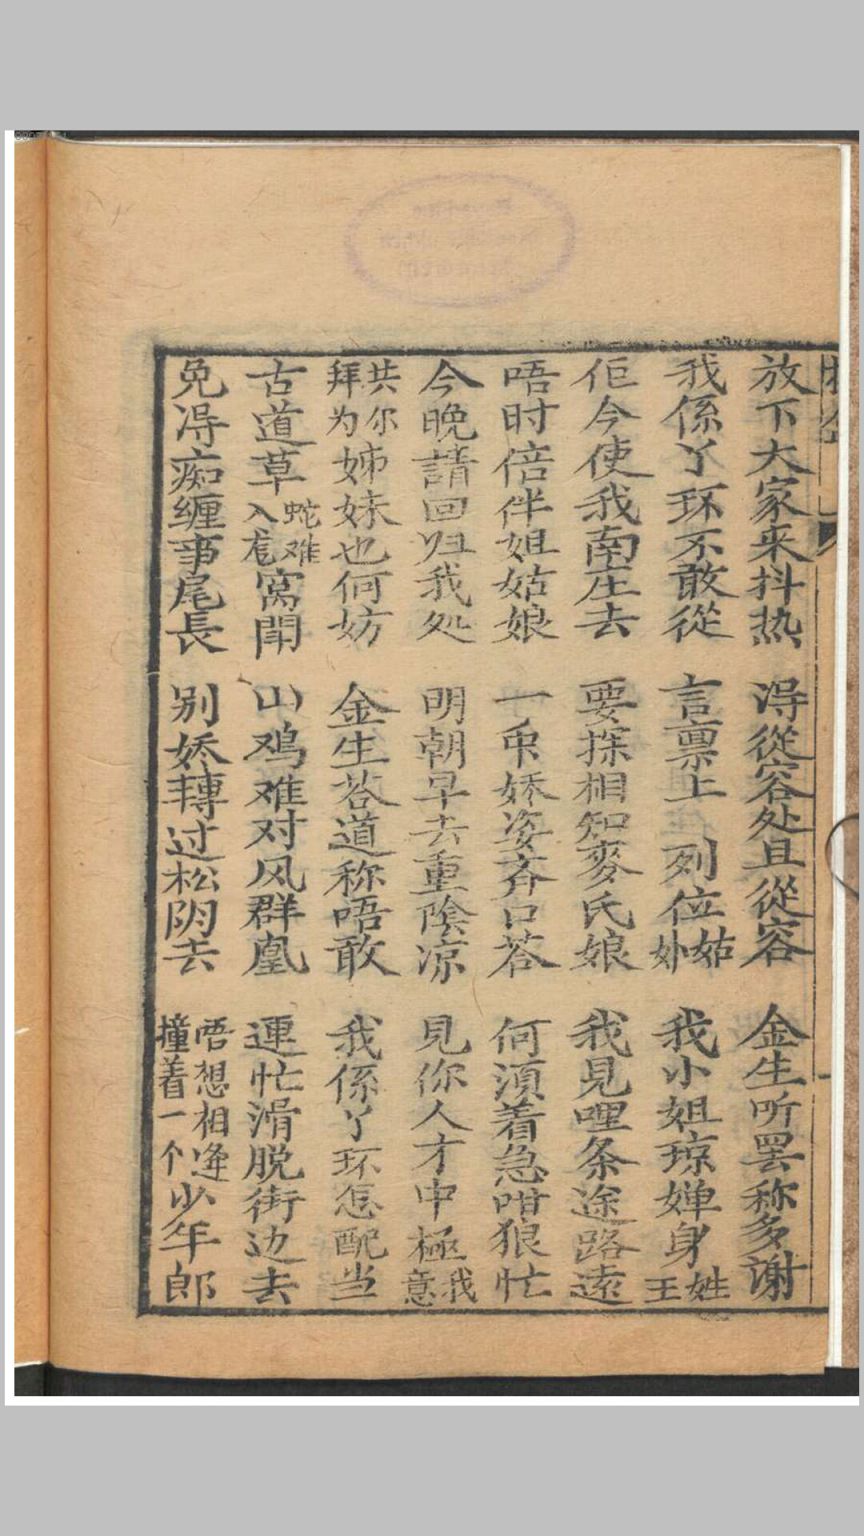 放下大家来抖热 淂從容处且從容 金生听罢称多謝
我係丫环不敢從 言禀上 列位姑 我小姐琼婵身姓王
佢今使我南庄去 要探相知麥氏娘 我見哩条途路遠
唔时倍伴姐姑娘 一 娇姿斉口荅 何湏着急咁狼忙
今晚請回归我处 明朝早去重陰凉 見你人才中極我意
共尔拜为姊妹也何妨 金生荅道称唔敢 我係丫环怎配当
古道草蛇难入 窝 山鸡难对风群凰 運忙滑脱街边去
免淂痴缠事尾長 别娇轉过松阴去 唔想相逢撞着一个少年郎